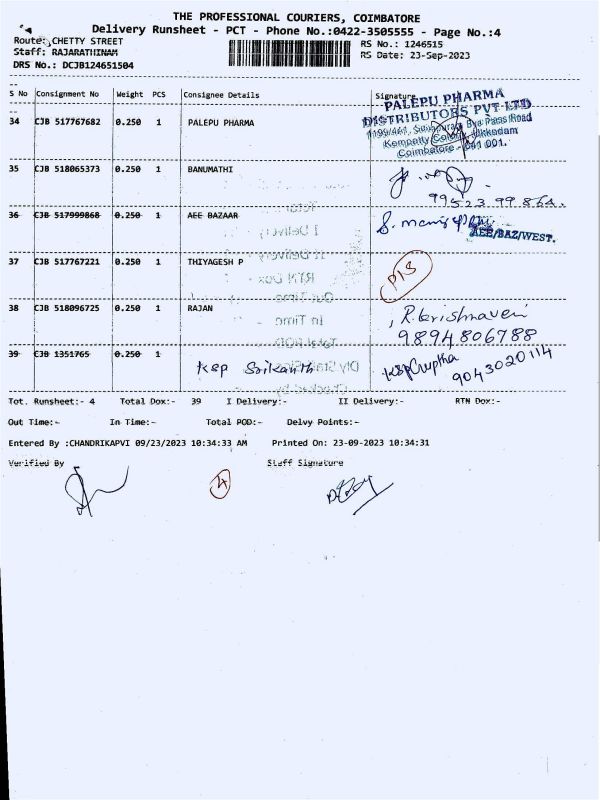 THE PROFESSIONAL COURIERS, COIMBATORE
Delivery Runsheet - PCT - Phone No.:0422-3505555 - Page No.:4
Route: CHETTY STREET
RS No.: 1246515
Staff: RAJARATHINAM
RS Date: 23-Sep-2023
DRS No.: DCJB124651504
S No Consignment No Weight PCS Consignee Details Signature
34 CJB 517767682 0.250 1 PALEPU PHARMA
PALEPU PHARMA
DISTRIBUTORS PVT LTD
Coimbatore - 641 001.
35 CJB 518065373 0.250 1 BANUMATHI
99523 99 864.
36 CJB 517999868 0.250 1 AEE BAZAAR
AEE/BAZ/WEST.
37 CJB 517767221 0.250 1 THIYAGESH P
38 CJB 518096725 0.250 1 RAJAN
R. Krishnaveni
9894806788
39 CJB 1351765 0.250 1 KSP Srikanth
KSP Guptha
9043020114
Tot. Runsheet:- 4 Total Dox:- 39 I Delivery:- II Delivery:- RTN Dox:-
Out Time:- In Time:- Total POD:- Delvy Points:-
Entered By :CHANDRIKAPVI 09/23/2023 10:34:33 AM Printed On: 23-09-2023 10:34:31
Verified By Staff Signature
4